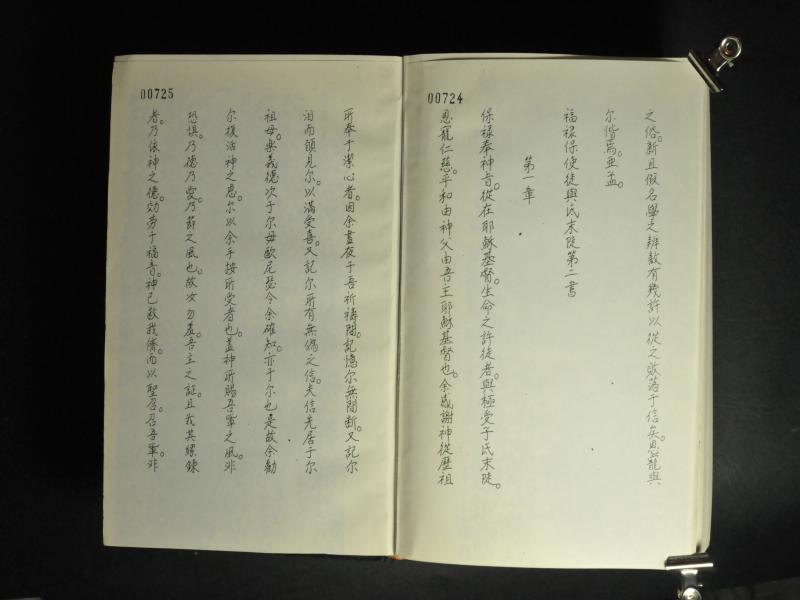 00724
之俗。新且假名學之辨。數有幾許以從之致落于信矣。恩寵與
尔偕焉。亜孟。
福祿保使徒與氏末陡第二書
第一章
保祿奉神旨。從在耶穌基督。生命之許徒者。與極愛子氏末陡。
恩寵仁慈。平和由神父由吾主耶穌基督也。余感謝神從歷祖
00725
所奉于潔心者。因余晝夜于吾祈禱間。記憶尔無間斷。又記尔
泪而願見尔。以滿受喜。又記尔所有無偽之信。夫信先居于尔
祖母。樂義德次于尔母歐尼瑟。今余確知。亦于尔也是故余勸
尔復活神之恩。尔以余手按所受者也。蓋神所賜吾輩之風。非
恐惧。乃德乃愛。乃節之風也。故汝勿羞吾主之証。且我其縲
者。乃依神之德。効劳于福音。神已救我儕。而以聖召。召吾輩。非